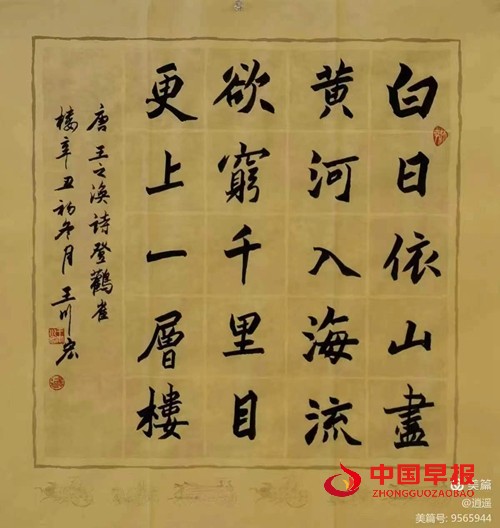 白日依山盡
黄河入海流
欲窮千里目
更上一層樓
唐王之渙詩登鸛雀
樓辛丑初冬月王川宏
中国早报
ZHONGGUOZAOBAO
美篇
@逍遥
美篇号: 9565944